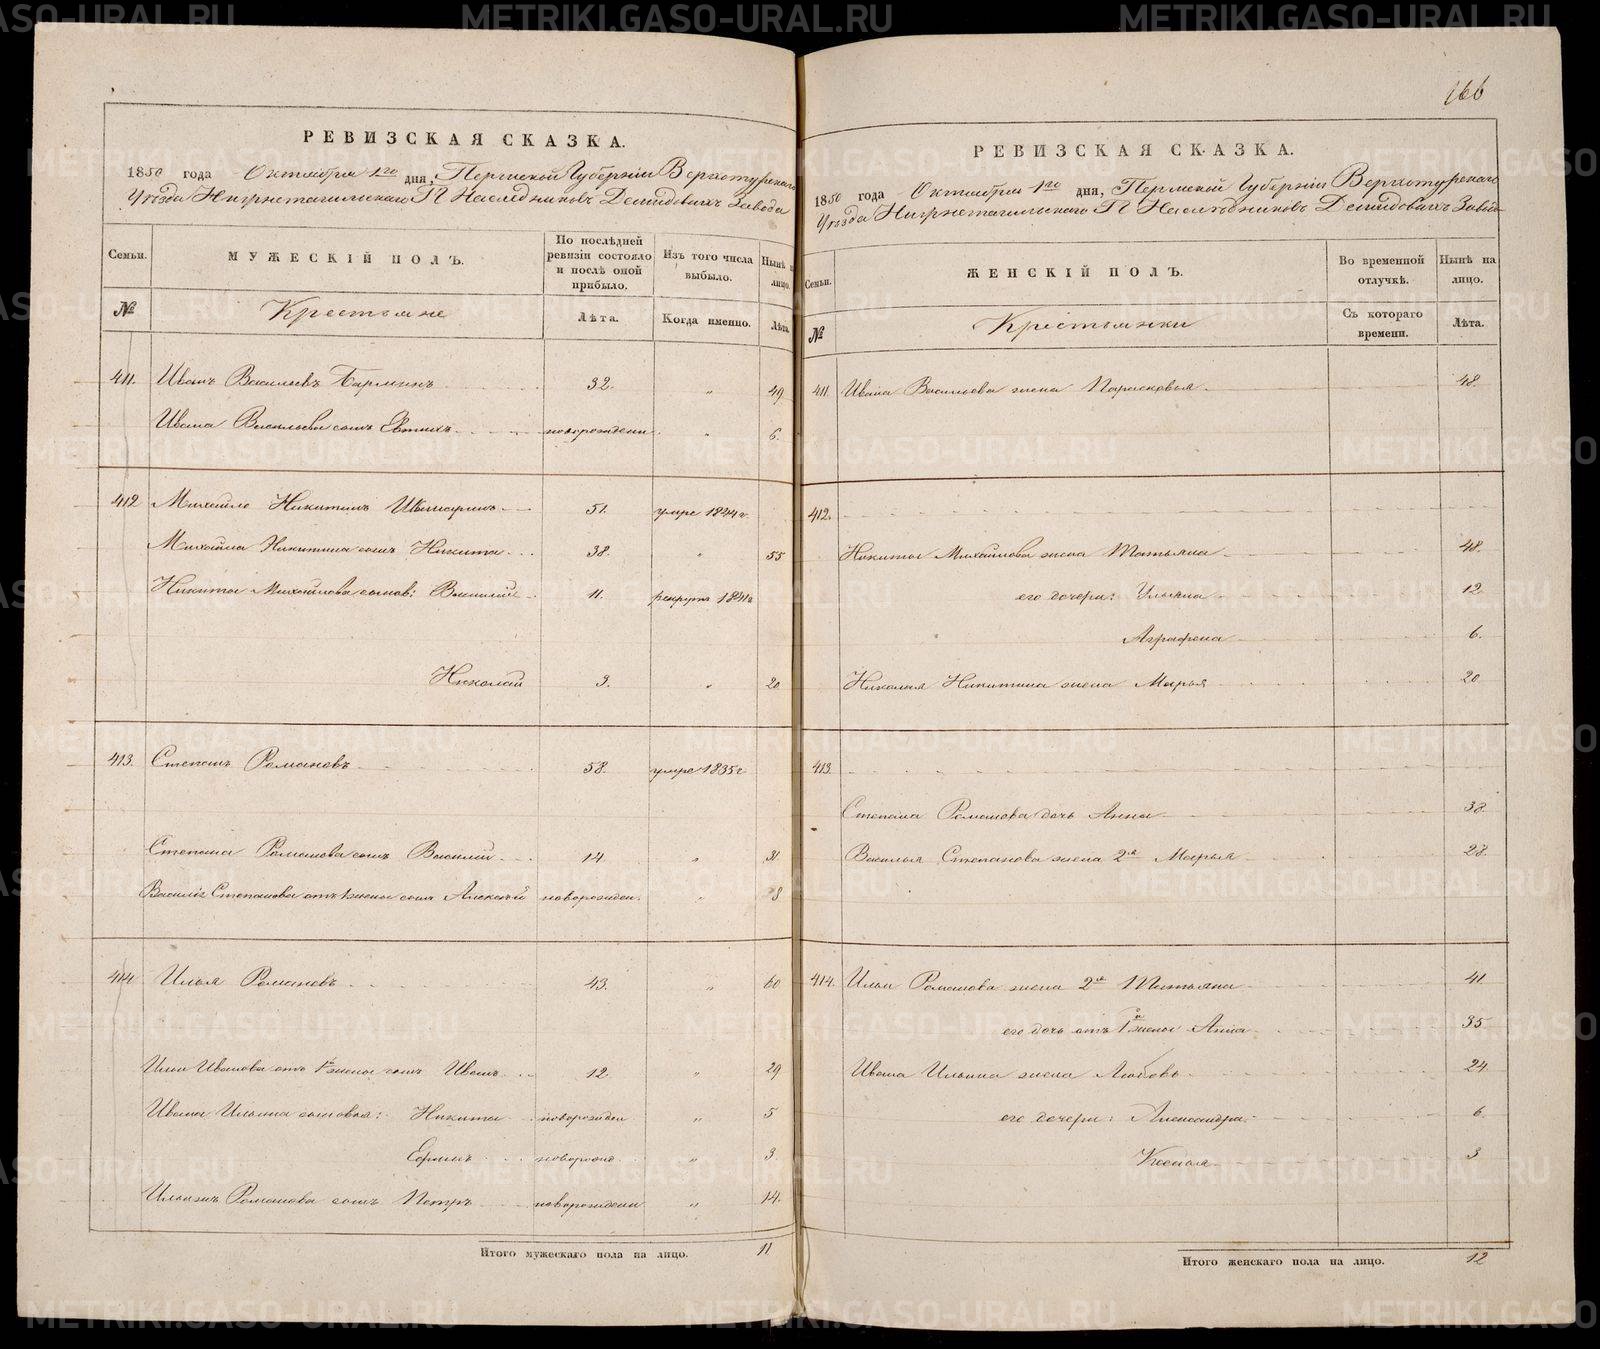 166
РЕВИЗСКАЯ СКАЗКА.
1850 года Октября 1го дня, Пермской Губерніи Верхотурскаго
Уѣзда Нижнетагильскаго Г.П. Наследниковъ Демидовыхъ Завода
Семьи.
МУЖЕСКІЙ ПОЛЪ.
По послѣдней ревизіи состояло и послѣ оной прибыло.
Изъ того числа выбыло.
Нынѣ на лицо.
№
Крестьяне
Лѣта.
Когда именно.
Лѣта.
411. Иванъ Васильевъ 32. „ 49
Ивана Васильева сынъ Евтихъ новорожден. „ 6.
412 Михайло Никитинъ 51. умре 1844 г.
Михайла Никитина сынъ Никита 38. „ 55
Никиты Михайлова сынов: Василий 11. рекрутъ 1841 г
Николай 3. „ 20
413. Степанъ Романовъ 58. умре 1835 г
Степана Романова сынъ Василий 14. „ 31
Василія Степанова отъ 1 жены сынъ Алексѣй новорожден. „ 8
414 Илья Романовъ 43. „ 60
Ильи Иванова отъ 1й жены сынъ Иванъ 12 „ 29
Ивана Ильина сыновья: Никита новорожден „ 5
Ефимъ новорожд. „ 3.
Романова сынъ Петръ новорожден „ 14.
Итого мужескаго пола на лицо. 11
РЕВИЗСКАЯ СКАЗКА.
1850 года Октября 1го дня, Пермской Губерніи Верхотурскаго
Уѣзда Нижнетагильскаго Г.П. Наслѣдниковъ Демидовыхъ Завода
Семьи.
ЖЕНСКІЙ ПОЛЪ.
Во временной отлучкѣ.
Нынѣ на лицо.
№
Крестьянки
Съ котораго времени.
Лѣта.
411. Ивана Васильева жена Парасковья 48.
412.
Никиты Михайлова жена Татьяна 48.
его дочери: Ульяна 12
Аграфена 6.
Николая Никитина жена Марья 20
413.
Степана Романова дочь Анна 38.
Василья Степанова жена 2я Марья 28.
414. Ильи Романова жена 2я Татьяна 41
его дочь отъ 1й жены Анна 35
Ивана Ильина жена Любовь 24
его дочери: Александра 6
Ксенья 3
Итого женскаго пола на лицо. 12
METRIKI.GASO-URAL.RU